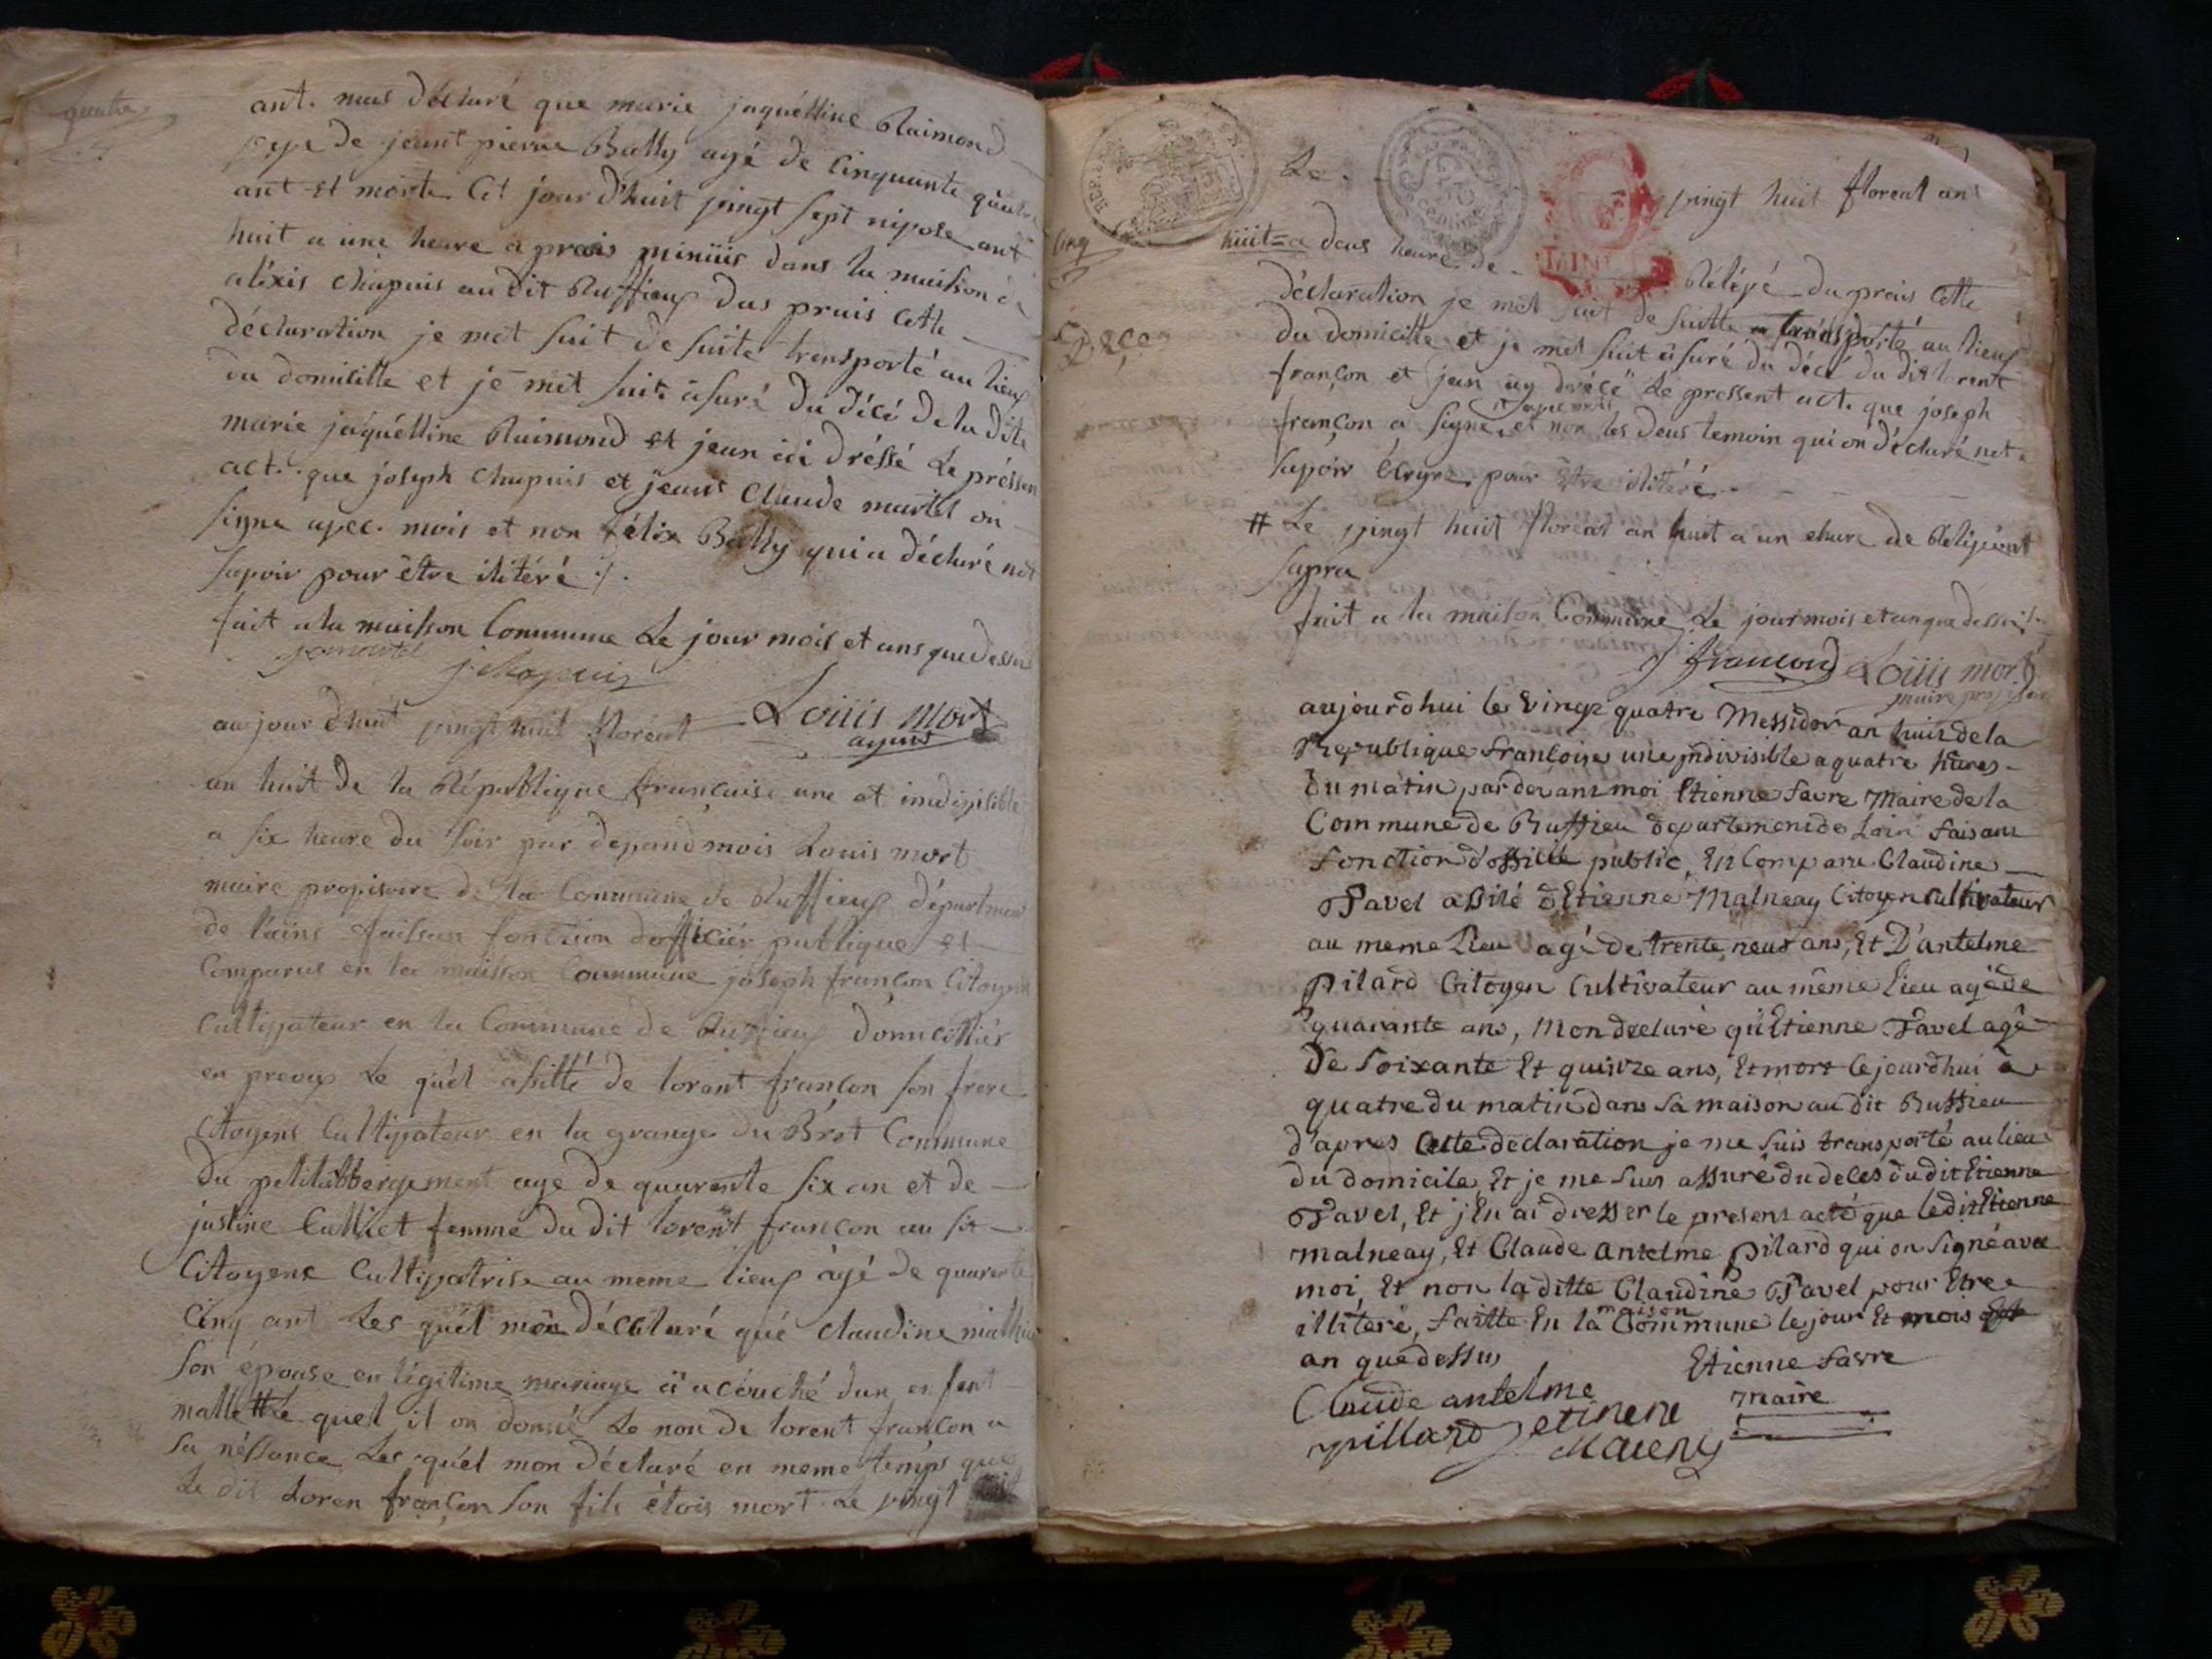 quatre
ant. mas déclaré que marie jaquélline Raimond
veve de jeant pierre Bally agé de Cinquante quatre
ant et morte Cet jour d'huit vingt sept nivose ant
huit a une heure a prais minüis dans la maison de
aléxis Chapuis au dit Ruffieux das prais cette
déclaration je met suit de suite transporté au lieux
du domicille et je met suit asuré du décé de la dite
marie jaquélline Raimond et jean ici dréssé Le présen
act. que joseph Chapuis et jeant Claude martel on
signe avec mois et non félix Bally qui a décluré not
savoir pour être ilitéré ./.
fait a la maisson Commune Le jour mois et ans que dessus
jcmartel j. chapuis
Louis Mort
agent
au jour dhuit vingt huit floréat
an huit de la République française une et indivisible
a six heure du soir par devand mois Louis mort
maire provisoire de la Commune de Ruffieux départment
de lains faissan fonction dofficiér publique et
Comparus en la maisson Commune joseph françon Citoyen
Cultivateur en la Commune de Ruffieux domicilliér
en Le quél assitté de lorant françon son frere
Citoyens Cultivateur en la grange du Bret Commune
du petitabbergement age de quarente six an et de
justine Calliet femme du dit lorent françon au sit
Citoyene Cultivatrise au meme lieux agé de quarente
Cinq ant Les quél mon décluré qué claudine mathieu
son épouse en légitime mariage a acouché dun enfent
malle # Le quel il on donné Le non de lorent françon a
sa néssance Les quél mon décluré en meme temps que
Le dit Loren françon son fils étois mort Le vingt
Cinq
Décé
Le vingt huit floreal an
huit = a deus heure de Rélévé du prais Cette
déclaration je met suit de suitte transporté au lieux
du domicille et je met suit asuré du décé du dit lorent
françon et jean ay dréçé Le pressent act. que joseph
françon a signe et non les deus temoin qui on décluré not
savoir Ecryre pour être ilitéré
# Le vingt huit floreal an huit a un eheure de
Sapra
fait a la maison Commune Le jour mois et an que dessus ./.
j françond Louis mort
maire provisoire
aujourdhui le vingt quatre Messidor an huit de la
Republique francoise une jndivisible a quatre hures
du matin par devant moi Etienne favre Maire de la
Commune de Ruffieu departement de Lain faisant
fonction dofficié public, En Comparu Claudine
Pavel assité d'Etienne Malneay Citoyen Cultivateur
au meme Lieu agé de trente neuf ans, Et D'antelme
Pilard Citoyen Cultivateur au même Lieu agé de
quarante ans, Mon declaré qu'Etienne Pavel agé
De Soixante Et quinze ans, Et mort lejourdhui à
quatre du matin dans sa maison au dit Ruffieu
d'apres Cette declaration je me suis transporté au lieu
du domicile, Et je me suis assuré du deces du dit Etienne
Pavel, Et jEn ai dresser le present acte que ledit Etienne
malneay, Et Claude antelme Pilard qui on Signé avec
moi, Et non la ditte Claudine Pavel pour Etre
illitere, faitte En la maison Commune le jour Et mois Et
an que dessus
Etienne favre
Maire
Claude antelme
pillard etinene
Maleney